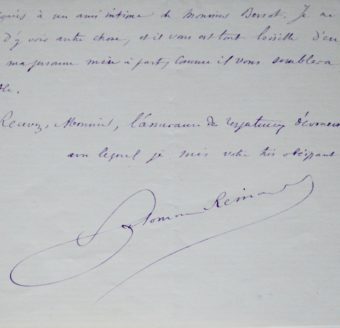 à un ami intime de Monsieur Bersot. Je ne
d'y voir autre chose, et il vous est tout loisible d'en
ma personne mise à part, comme il vous semblera
Recevez, Monsieur, l'assurance du
avec lequel je suis votre très obéissant
Salomon Reinach